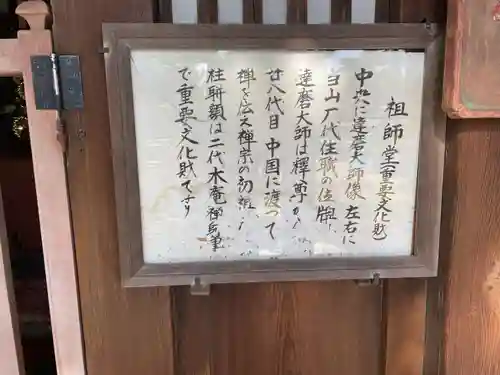 祖師堂(重要文化財)
中央に達磨大師像 左右に
当山歴代住職の位牌
達磨大師は釋尊から
廿八代目 中国に渡って
禅を広め禅宗の初祖
柱聯額は二代木庵禅師筆
で重要文化財です